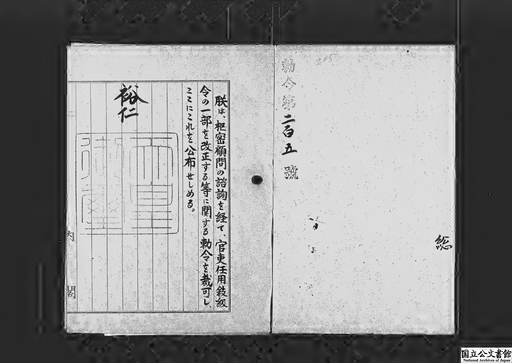 総
勅令第二百五號
朕は、枢密顧問の諮詢を経て、官吏任用叙級
令の一部を改正する等に関する勅令を裁可し、
ここにこれを公布せしめる。
裕仁
内閣
国立公文書館
National Archives of Japan